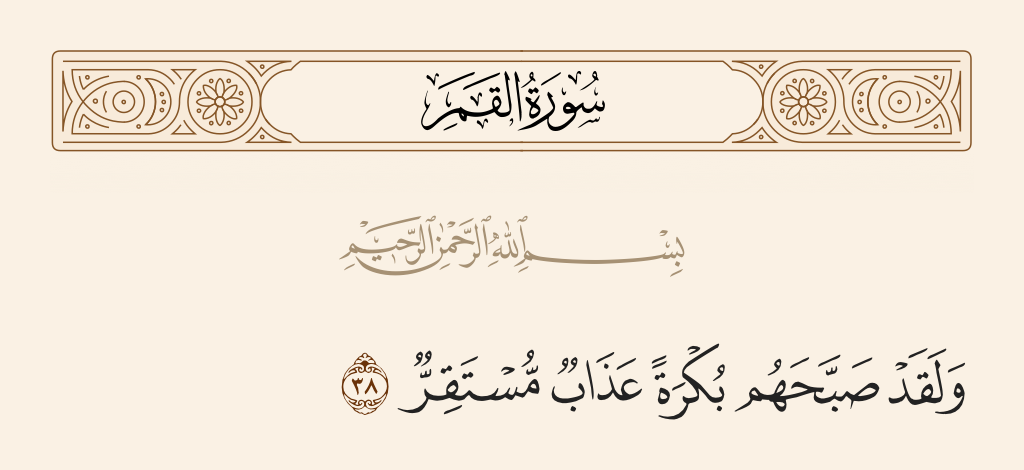 سُورَةُ القَمَرِ
بِسْمِ ٱللَّهِ ٱلرَّحْمَٰنِ ٱلرَّحِيمِ
وَلَقَدْ صَبَّحَهُم بُكْرَةً عَذَابٌ مُّسْتَقِرٌّ ٣٨